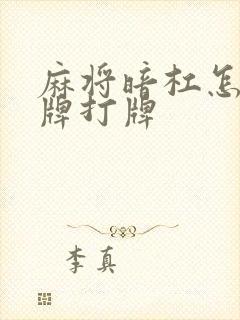 麻将暗杠怎
牌打牌
李真